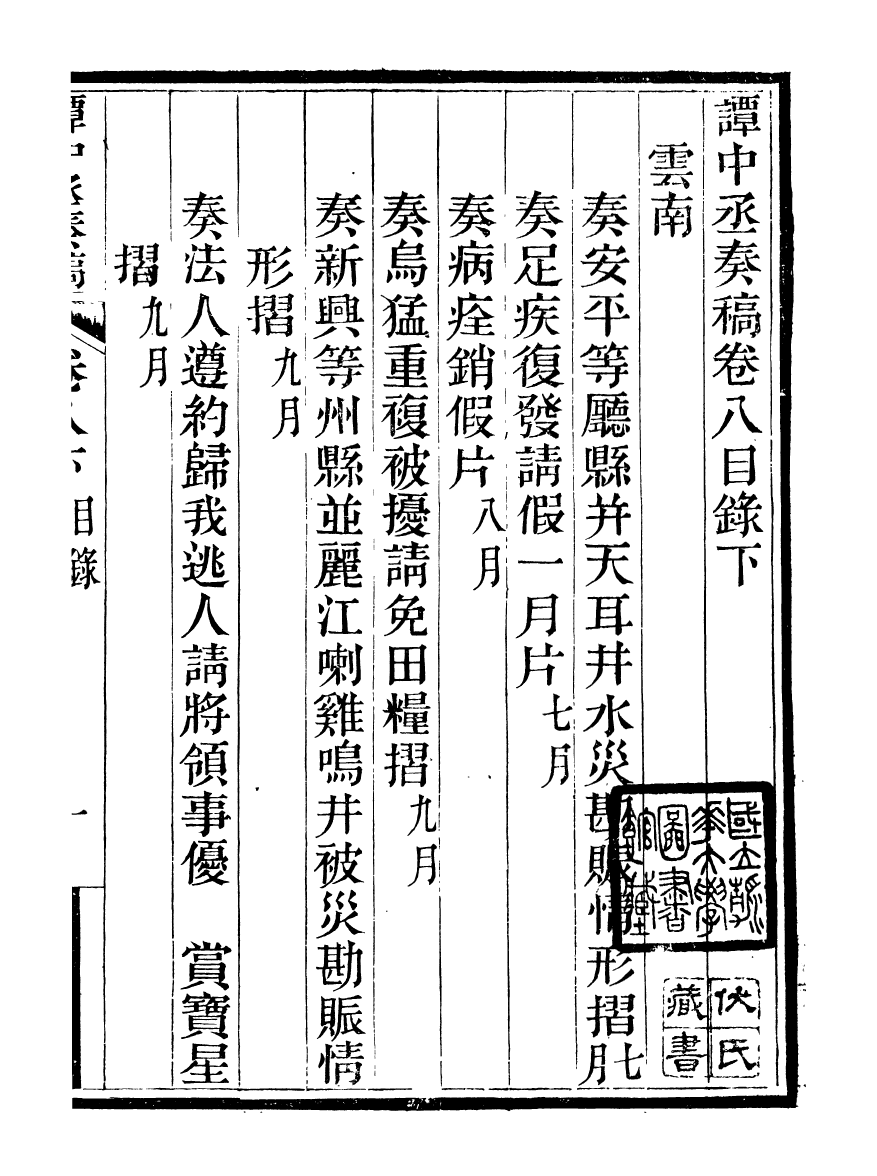 譚中丞奏稿卷八目錄下
雲南
奏安平等廳縣幷天耳井水災勘賑情形摺七月
奏足疾復發請假一月片七月
奏病痊銷假片八月
奏烏猛重複被擾請免田糧摺九月
奏新興等州縣並麗江喇雞鳴井被災勘賑情
形摺九月
奏法人遵約歸我逃人請將領事優　賞寶星
摺九月
譚中丞奏稿　卷八下　目錄　一
國立清華大學
圖書
館藏
伏氏
藏書